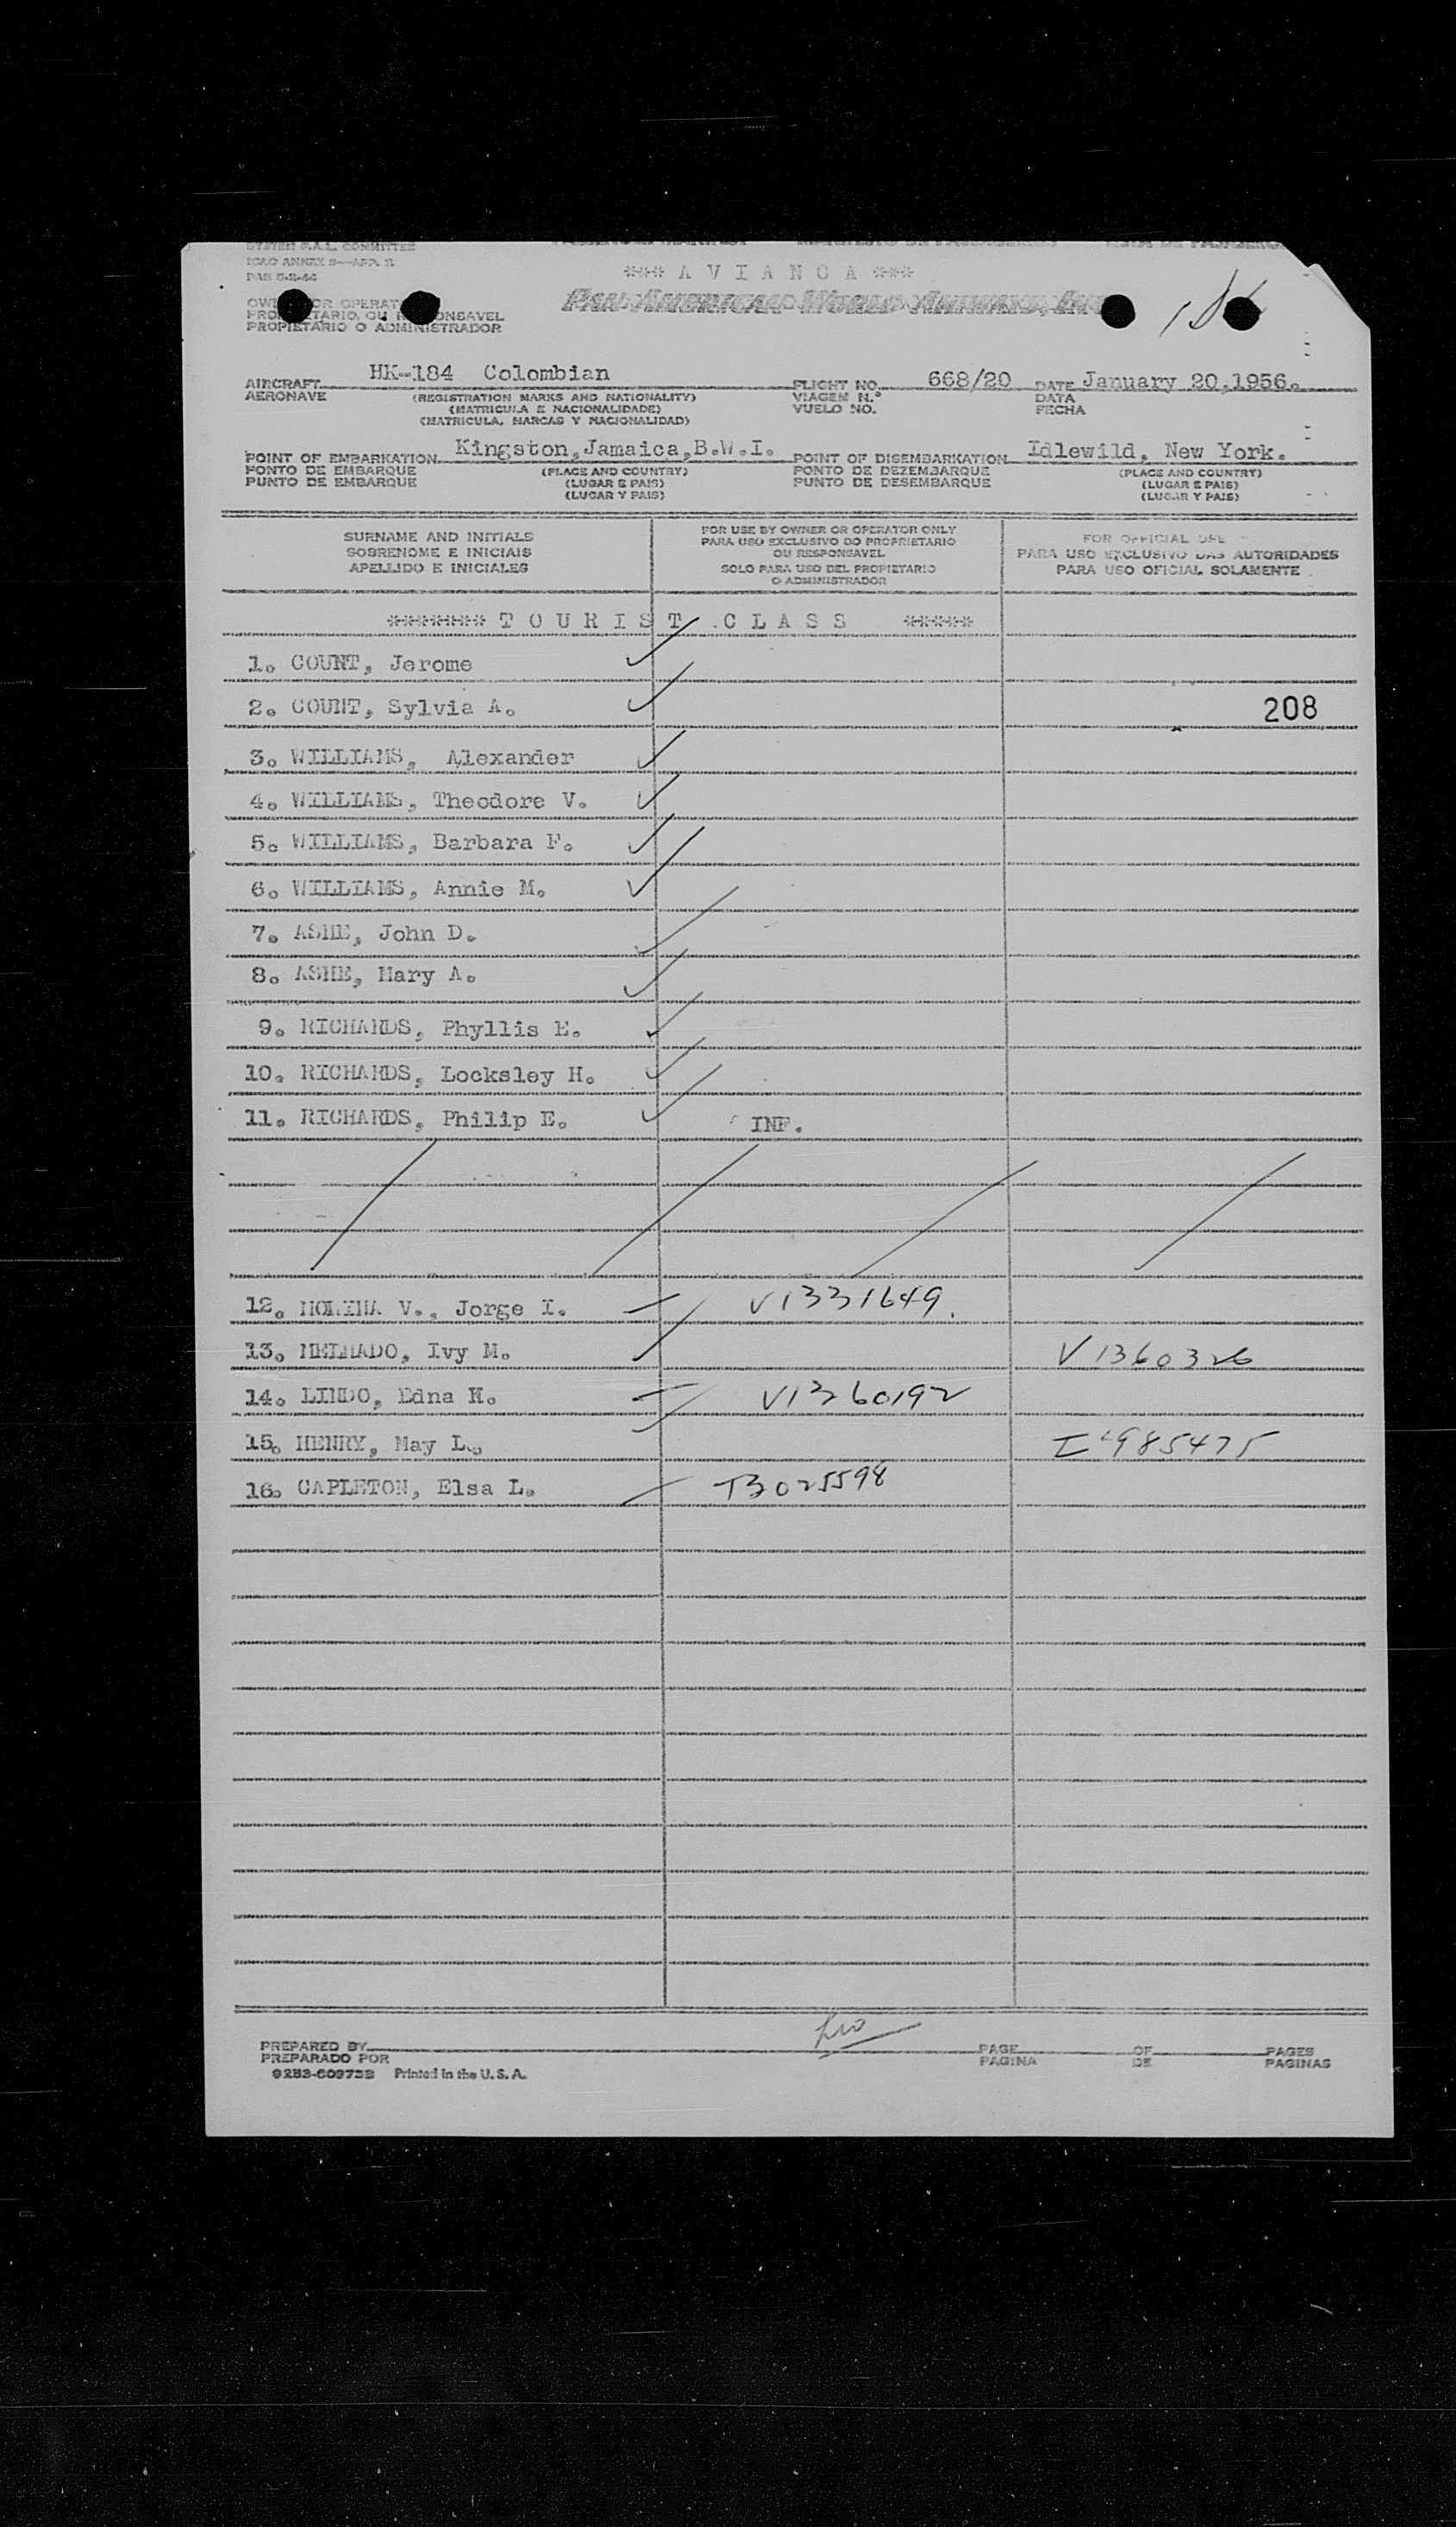 SYSTEM P.A.L. COMMITTEE
ICAO ANNEX 9—APP. 2
*** A V I A N C A ***
PAN AMERICAN WORLD AIRWAYS, INC.
PROPIETARIO O ADMINISTRADOR
HK-184 Colombian 668/20 January 20,1956.
AIRCRAFT FLIGHT NO. DATE
AERONAVE (REGISTRATION MARKS AND NATIONALITY) VIAGEM N.º DATA
(MATRICULA E NACIONALIDADE) VUELO NO. FECHA
(MATRICULA, MARCAS Y NACIONALIDAD)
Kingston,Jamaica,B.W.I. Idlewild, New York.
POINT OF EMBARKATION POINT OF DISEMBARKATION
PONTO DE EMBARQUE (PLACE AND COUNTRY) PONTO DE DEZEMBARQUE (PLACE AND COUNTRY)
PUNTO DE EMBARQUE (LUGAR E PAIS) PUNTO DE DESEMBARQUE (LUGAR E PAIS)
(LUGAR Y PAIS) (LUGAR Y PAIS)
SURNAME AND INITIALS
SOBRENOME E INICIAIS
APELLIDO E INICIALES
FOR USE BY OWNER OR OPERATOR ONLY
PARA USO EXCLUSIVO DO PROPRIETARIO
OU RESPONSAVEL
SOLO PARA USO DEL PROPIETARIO
O ADMINISTRADOR
FOR OFFICIAL USE
PARA USO EXCLUSIVO DAS AUTORIDADES
PARA USO OFICIAL SOLAMENTE
****** T O U R I S T . C L A S S *****
1. COUNT, Jerome
2. COUNT, Sylvia A. 208
3. WILLIAMS, Alexander
4. WILLIAMS, Theodore V.
5. WILLIAMS, Barbara F.
6. WILLIAMS, Annie M.
7. ASHE, John D.
8. ASHE, Mary A.
9. RICHARDS, Phyllis E.
10. RICHARDS, Locksley H.
11. RICHARDS, Philip E. INF.
12. MOLINA V., Jorge I. V1331649.
13. MELHADO, Ivy M. V1360326
14. LINDO, Edna N. V1360192
15. HENRY, May L. 
16. CAPLETON, Elsa L. T3025598
PREPARED BY PAGE OF PAGES
PREPARADO POR PAGINA DE PAGINAS
Printed in the U.S.A.